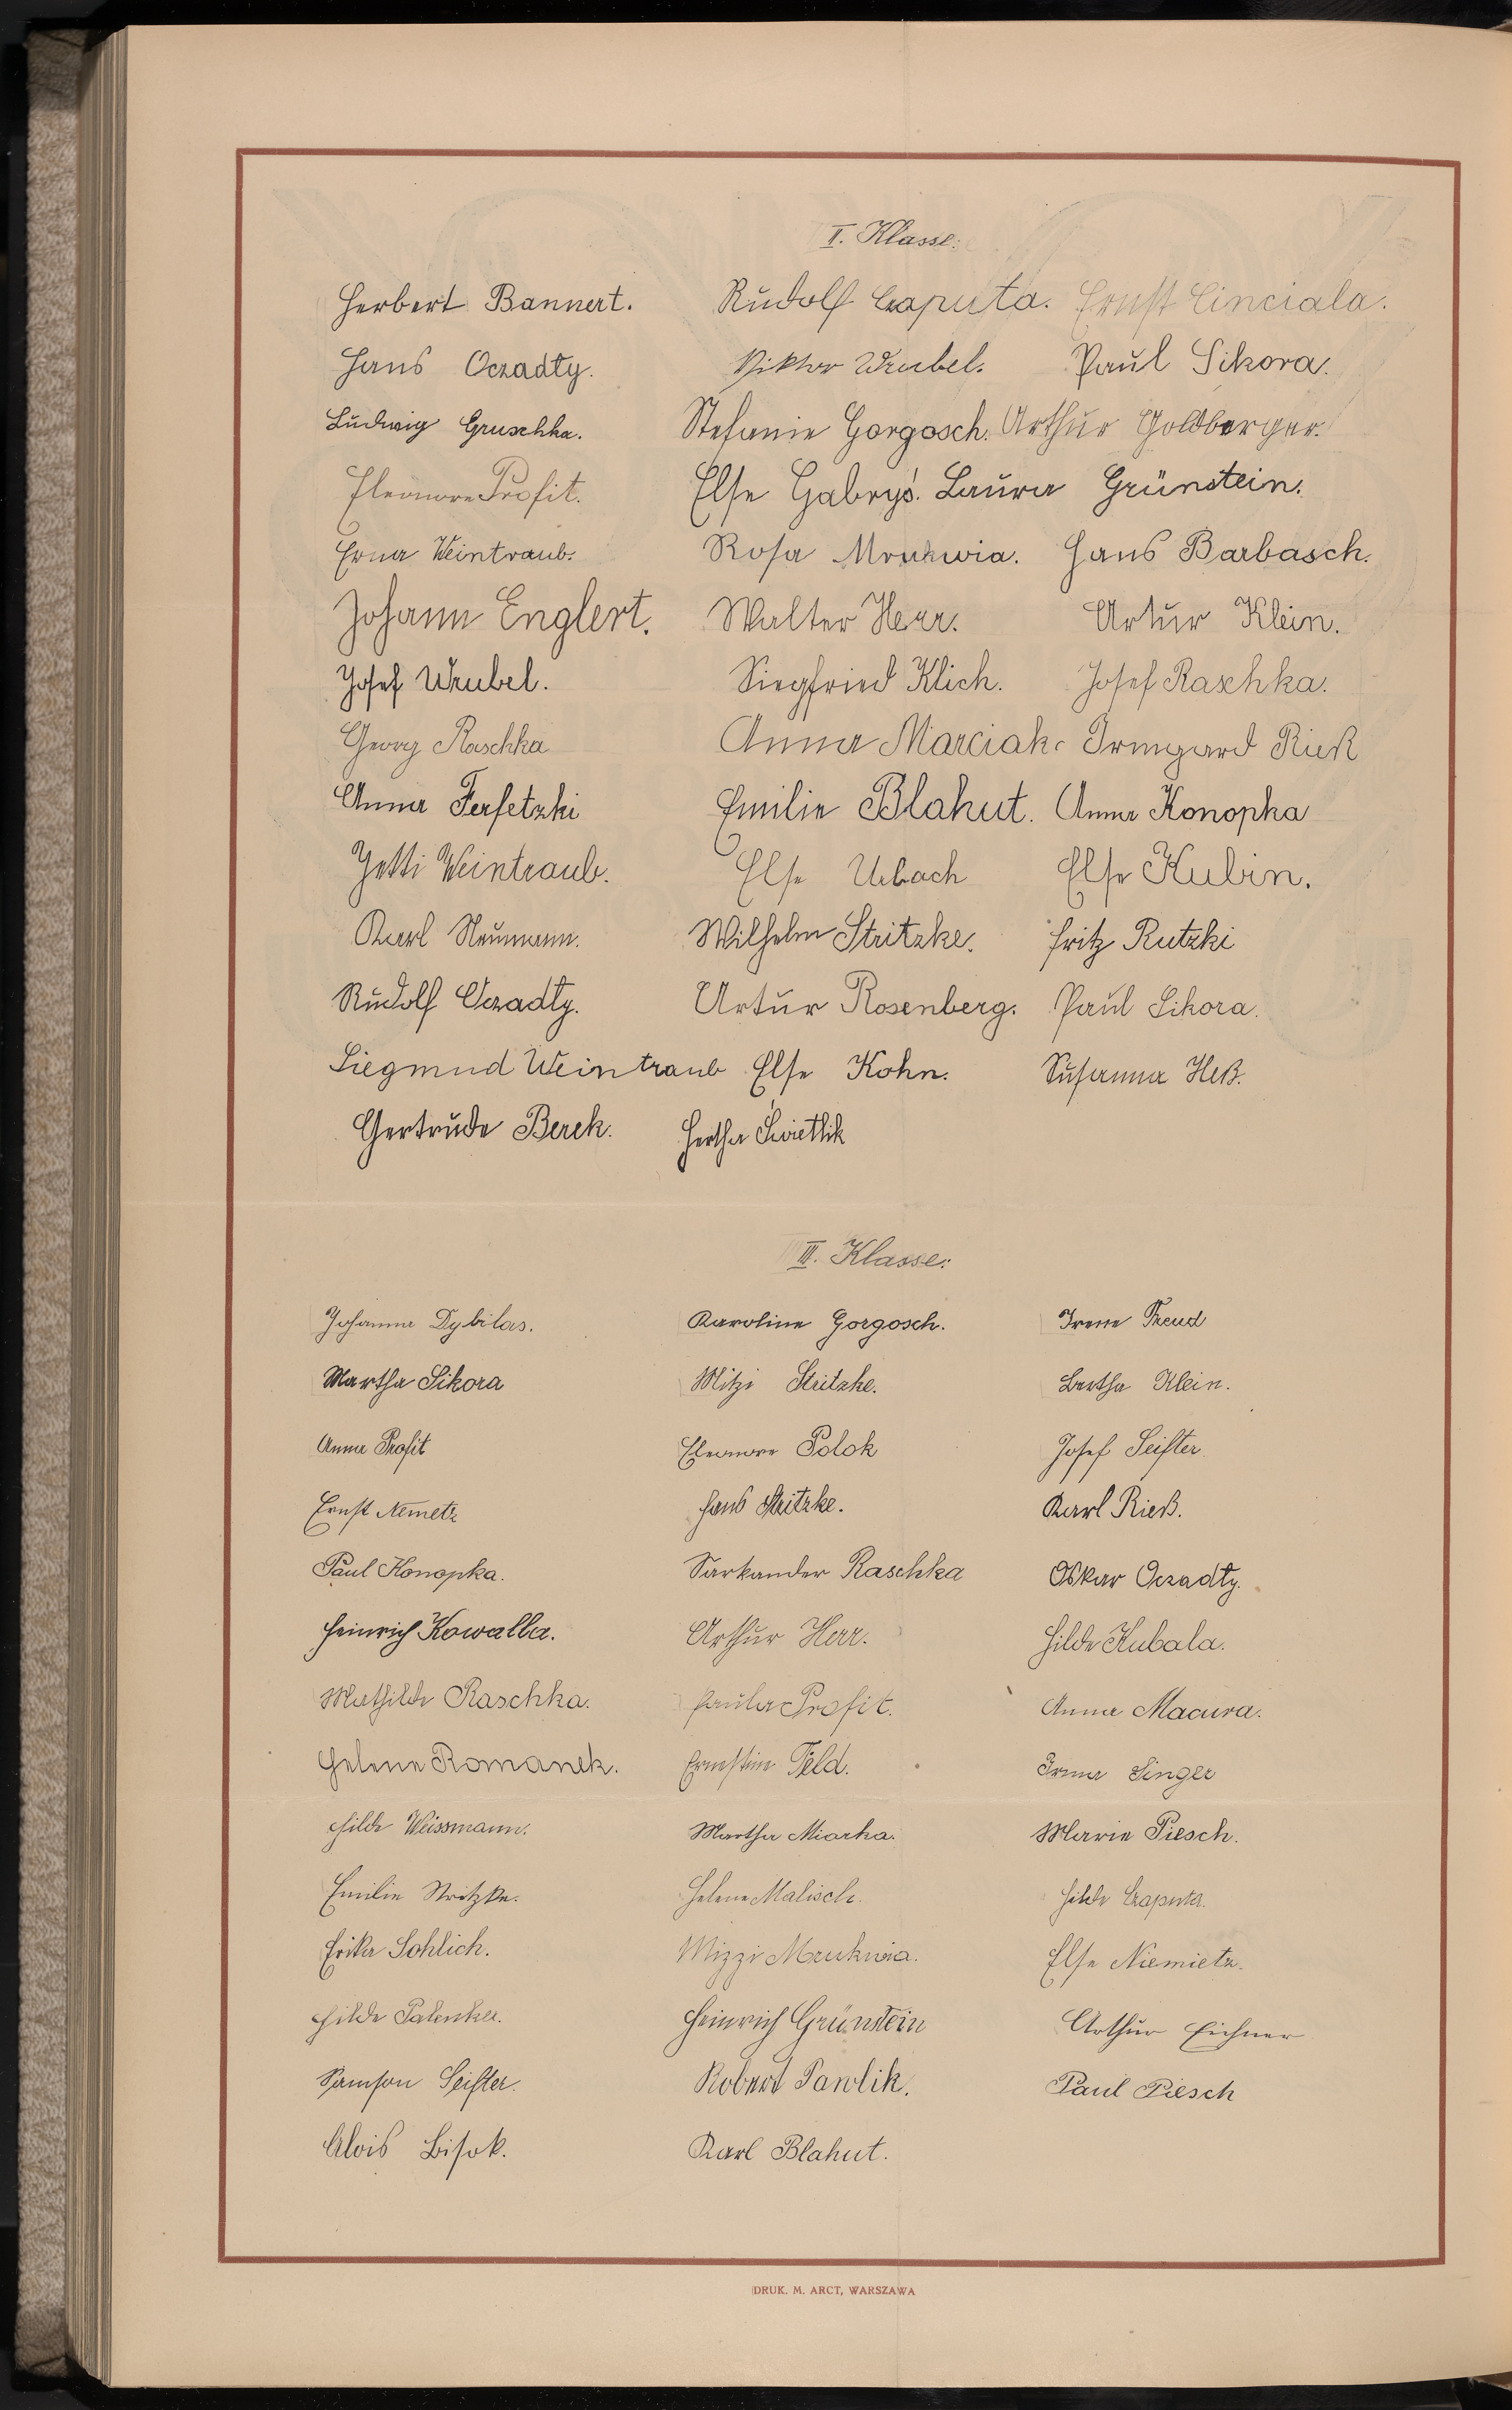 II. Klasse:
Herbert Bannert. Rudolf Czaputa. Ernst Cinciala.
Hans Oczadly. Viktor Wrubel. Paul Sikora.
Ludwig Gruschka. Stefanie Gorgosch. Arthur Goldberger.
Eleonore Profit. Else Gabryś. Laura Grünstein.
Erna Weintraub. Rosa Mrukwia. Hans Barbasch.
Johann Englert. Walter Herr. Artur Klein.
Josef Wrubel. Siegfried Klich. Josef Raschka.
Georg Raschka Anna Marciak. Irmgard Rieß
Anna Ferfetzki Emilie Blahut. Anna Konopka
Jetti Weintraub. Else Urbach Else Kubin.
Karl Neumann. Wilhelm Stritzke. Fritz Rutzki
Rudolf Oczadly. Artur Rosenberg. Paul Sikora.
Siegmund Weintraub Else Kohn. Susanna Heß.
Gertrude Berek. Hertha Świetlik
III. Klasse:
Johanna Dybilas. Karoline Gorgosch. Irene Freud
Martha Sikora Mitzi Stritzke. Bertha Klein.
Anna Profit Eleonore Polok Josef Seifter
Ernst Nemetz Hans Stritzke. Karl Rieß.
Paul Konopka. Sarkander Raschka Oskar Oczadly.
Heinrich Kowalla. Arthur Herr. Hilde Kubala.
Mathilde Raschka. Paula Profit. Anna Macura.
Helene Romanek. Ernestine Feld. Irma Singer
Hilde Weissmann. Martha Miarka. Marie Piesch.
Emilie Stritzke. Helene Malisch. Hilde Czaputa.
Erika Sohlich. Mizzi Mrukwia. Else Niemietz.
Hilde Palenka. Heinrich Grünstein Arthur Eichner
Samson Seifter. Robert Pawlik. Paul Piesch
Alois Bisok. Karl Blahut.
DRUK. M. ARCT, WARSZAWA